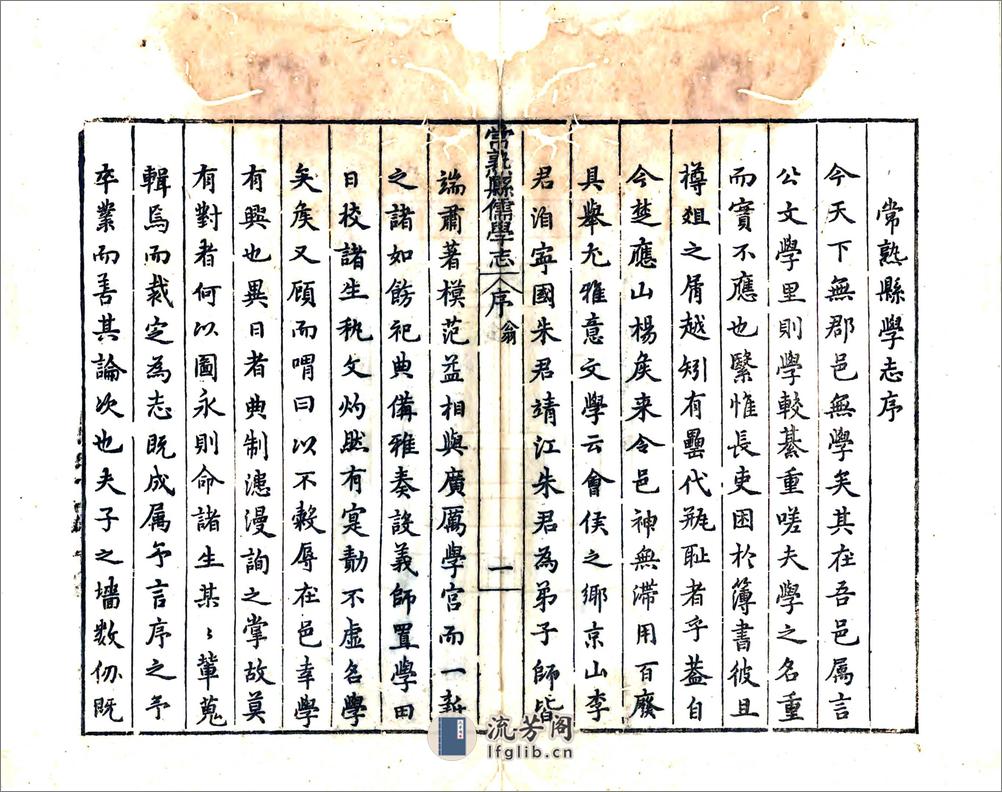 常熟縣學志序
今天下無郡邑無學矣其在吾邑属言
公文學里則學較綦重嗟夫學之名重
而實不應也繄惟長吏困於簿書彼且
樽俎之屑越矧有罍代瓶耻者乎葢自
今楚應山楊矦来令邑神無滯用百廢
具舉尤雅意文學云會侯之鄉京山李
君洎寧國朱君靖江朱君為弟子師皆
常熟縣儒學志 序 翁 一
端肅著模范益相與廣厲學官而一新
之諸如飭祀典備雅奏設義師置學田
日校諸生秇文灼然有寔勣不虚名學
矣矦又顧而喟曰以不穀辱在邑幸學
有興也異日者典制漶漫詢之掌故莫
有對者何以圖永則命諸生某〻軰蒐
輯焉而裁定為志既成属予言序之予
卒業而善其論次也夫子之墻数仞既
流芳阁
lfglib.cn